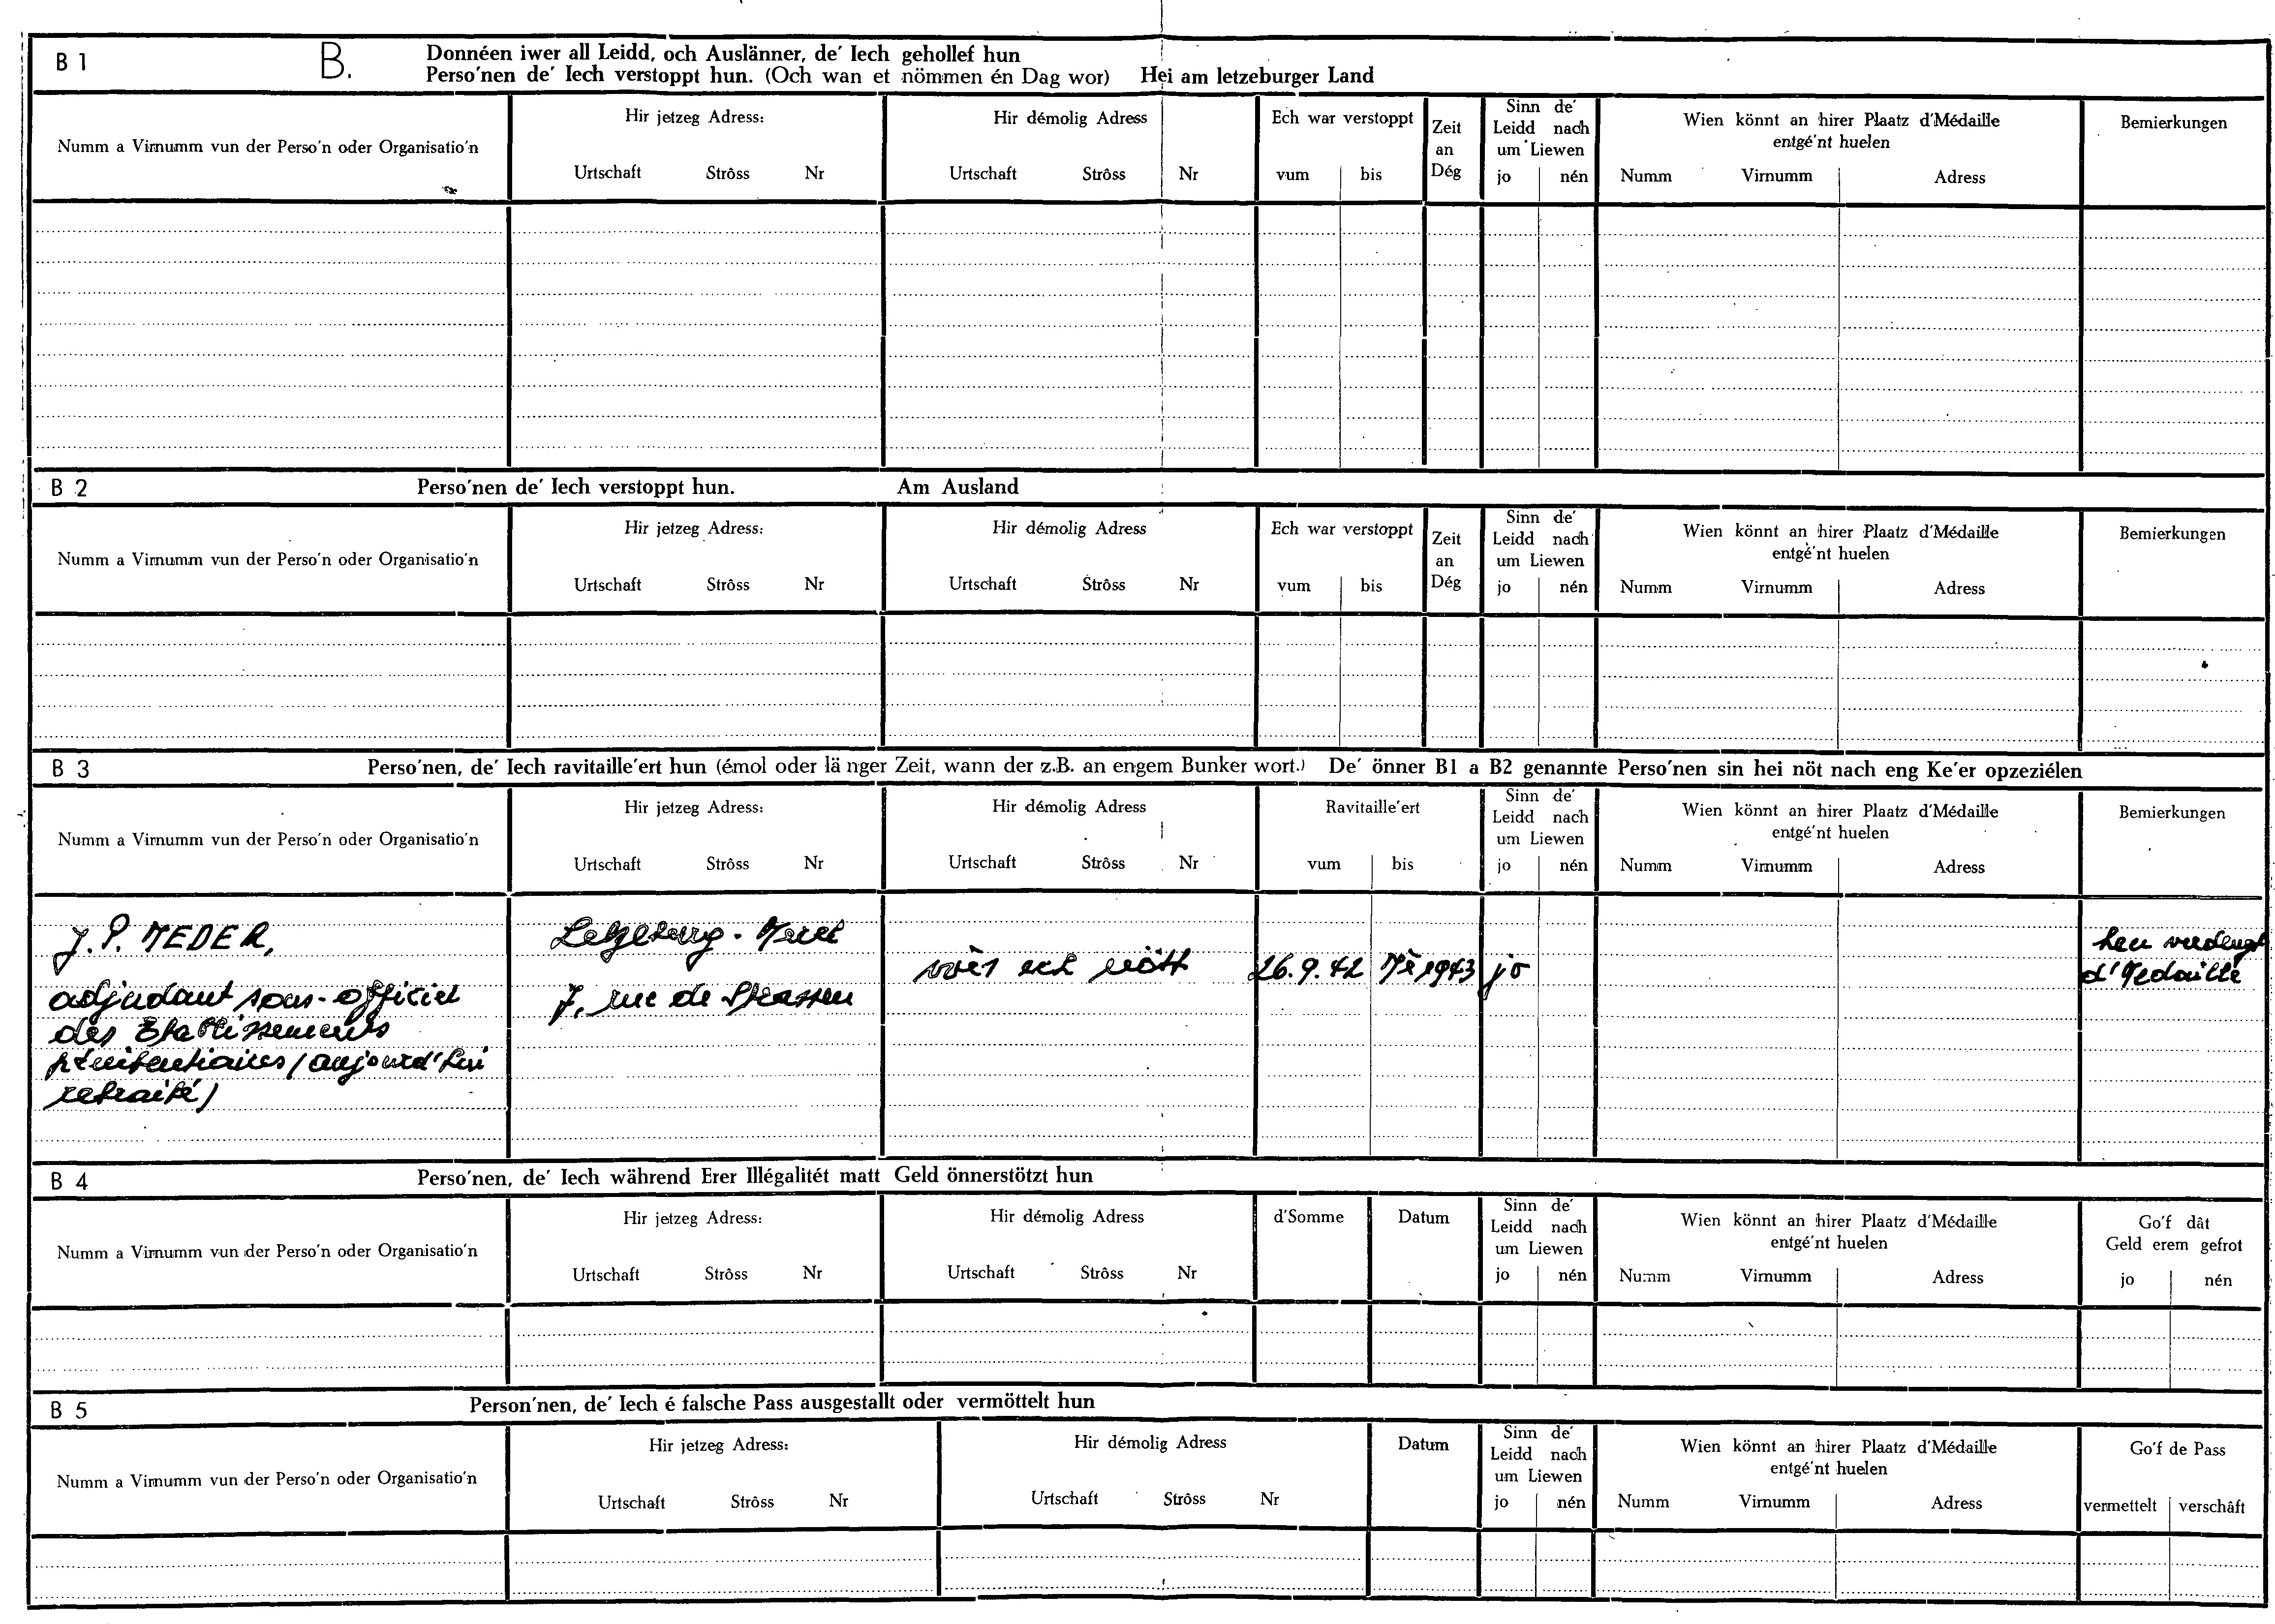 B 1 B. Donnéen iwer all Leidd, och Auslänner, de' Iech gehollef hun
Perso'nen de' Iech verstoppt hun. (Och wan et nömmen én Dag wor) Hei am letzeburger Land
Numm a Virnumm vun der Perso'n oder Organisatio'n
Hir jetzeg Adress:
Urtschaft Strôss Nr
Hir démolig Adress
Urtschaft Strôss Nr
Ech war verstoppt
vum bis
Zeit
an
Dég
Sinn de'
Leidd nach
um Liewen
jo nén
Wien könnt an hirer Plaatz d'Médaille
entgé'nt huelen
Numm Virnumm Adress
Bemierkungen
B 2 Perso'nen de' Iech verstoppt hun. Am Ausland
Numm a Virnumm vun der Perso'n oder Organisatio'n
Hir jetzeg Adress:
Urtschaft Strôss Nr
Hir démolig Adress
Urtschaft Strôss Nr
Ech war verstoppt
vum bis
Zeit
an
Dég
Sinn de'
Leidd nach
um Liewen
jo nén
Wien könnt an hirer Plaatz d'Médaille
entgé'nt huelen
Numm Virnumm Adress
Bemierkungen
B 3 Perso'nen, de' Iech ravitaille'ert hun (émol oder länger Zeit, wann der z.B. an engem Bunker wort.) De' önner B1 a B2 genannte Perso'nen sin hei nöt nach eng Ke'er opzeziélen
Numm a Virnumm vun der Perso'n oder Organisatio'n
Hir jetzeg Adress:
Urtschaft Strôss Nr
Hir démolig Adress
Urtschaft Strôss Nr
Ravitaille'ert
vum bis
Sinn de'
Leidd nach
um Liewen
jo nén
Wien könnt an hirer Plaatz d'Médaille
entgé'nt huelen
Numm Virnumm Adress
Bemierkungen
J. P. MEDER,
adjudant sous-officier
des Etablissements
pénitentiaires (aujourd'hui
retraité)
Letzeburg - Merel
7, rue de Strassen
wès ech nött
26.9.42
Mè 1943
jo
hen verdengt
d'Medaille
B 4 Perso'nen, de' Iech während Erer Illégalitét matt Geld önnerstötzt hun
Numm a Virnumm vun der Perso'n oder Organisatio'n
Hir jetzeg Adress:
Urtschaft Strôss Nr
Hir démolig Adress
Urtschaft Strôss Nr
d'Somme
Datum
Sinn de'
Leidd nach
um Liewen
jo nén
Wien könnt an hirer Plaatz d'Médaille
entgé'nt huelen
Numm Virnumm Adress
Go'f dât
Geld erem gefrot
jo nén
B 5 Person'nen, de' Iech é falsche Pass ausgestallt oder vermöttelt hun
Numm a Virnumm vun der Perso'n oder Organisatio'n
Hir jetzeg Adress:
Urtschaft Strôss Nr
Hir démolig Adress
Urtschaft Strôss Nr
Datum
Sinn de'
Leidd nach
um Liewen
jo nén
Wien könnt an hirer Plaatz d'Médaille
entgé'nt huelen
Numm Virnumm Adress
Go'f de Pass
vermettelt verschâft